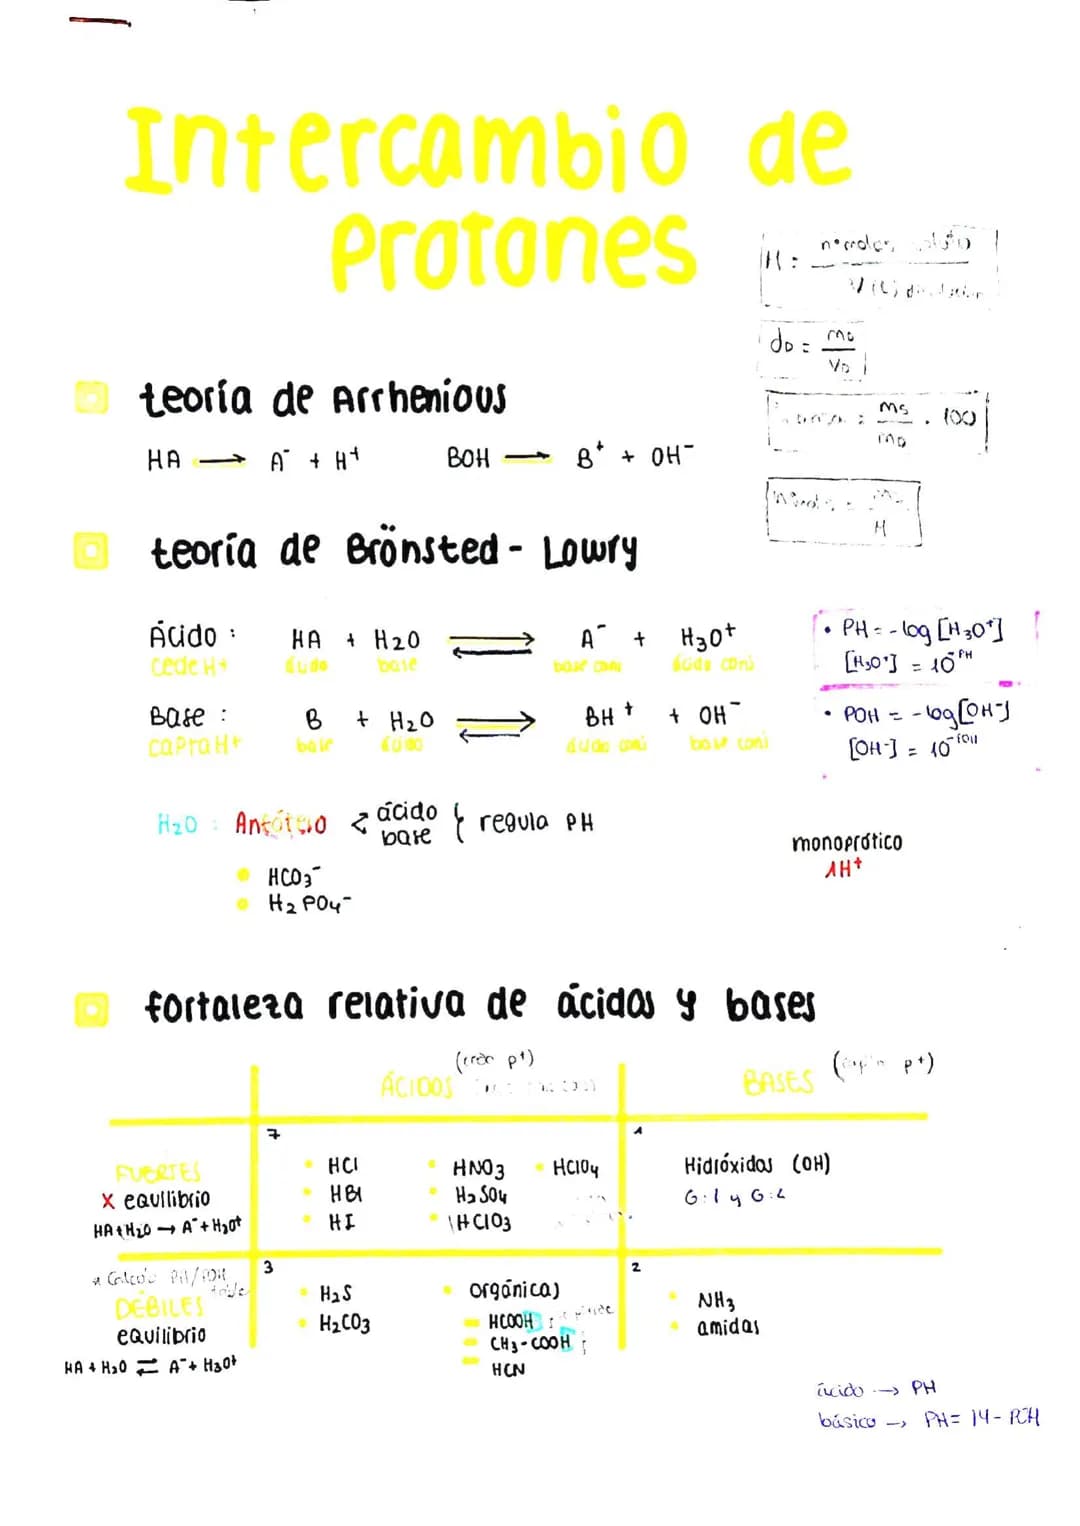 Intercambio de
Protones
M = nº moles soluto
V (L) disolución
dD = mD
VD
ms . 100
mD
nºmoles = ms
M
teoría de Arrhenious
HA → A⁻ + H⁺ BOH → B⁺ + OH⁻
teoría de Brönsted - Lowry
Ácido : HA + H₂O ⇌ A⁻ + H₃O⁺
cede H+ ácido base base conj ácido conj
Base : B + H₂O ⇌ BH⁺ + OH⁻
capta H+ base ácido ácido conj base conj
• PH = -log [H₃O⁺]
[H₃O⁺] = 10⁻ᴾᴴ
• POH = -log [OH-]
[OH-] = 10⁻ᴾᴼᴴ
H₂O : Anfótero < ácido
base } regula PH
• HCO₃⁻
• H₂PO₄⁻
monoprótico
1H⁺
fortaleza relativa de ácidos y bases
ÁCIDOS (ceden p+)
BASES (captan p+)
FUERTES
X equilibrio
HA + H₂O → A⁻ + H₃O⁺
7
• HCl
• HBr
• HI
• HNO₃
• H₂SO₄
• HClO₃
• HClO₄
1
Hidróxidos (OH)
G:1 y G:2
* Calcular PH/POH
DÉBILES
equilibrio
HA + H₂O ⇌ A⁻ + H₃O⁺
3
• H₂S
• H₂CO₃
• orgánicas
HCOOH
CH₃-COOH
HCN
2
• NH₃
• amidas
ácido → PH
básico → PH = 14 - POH